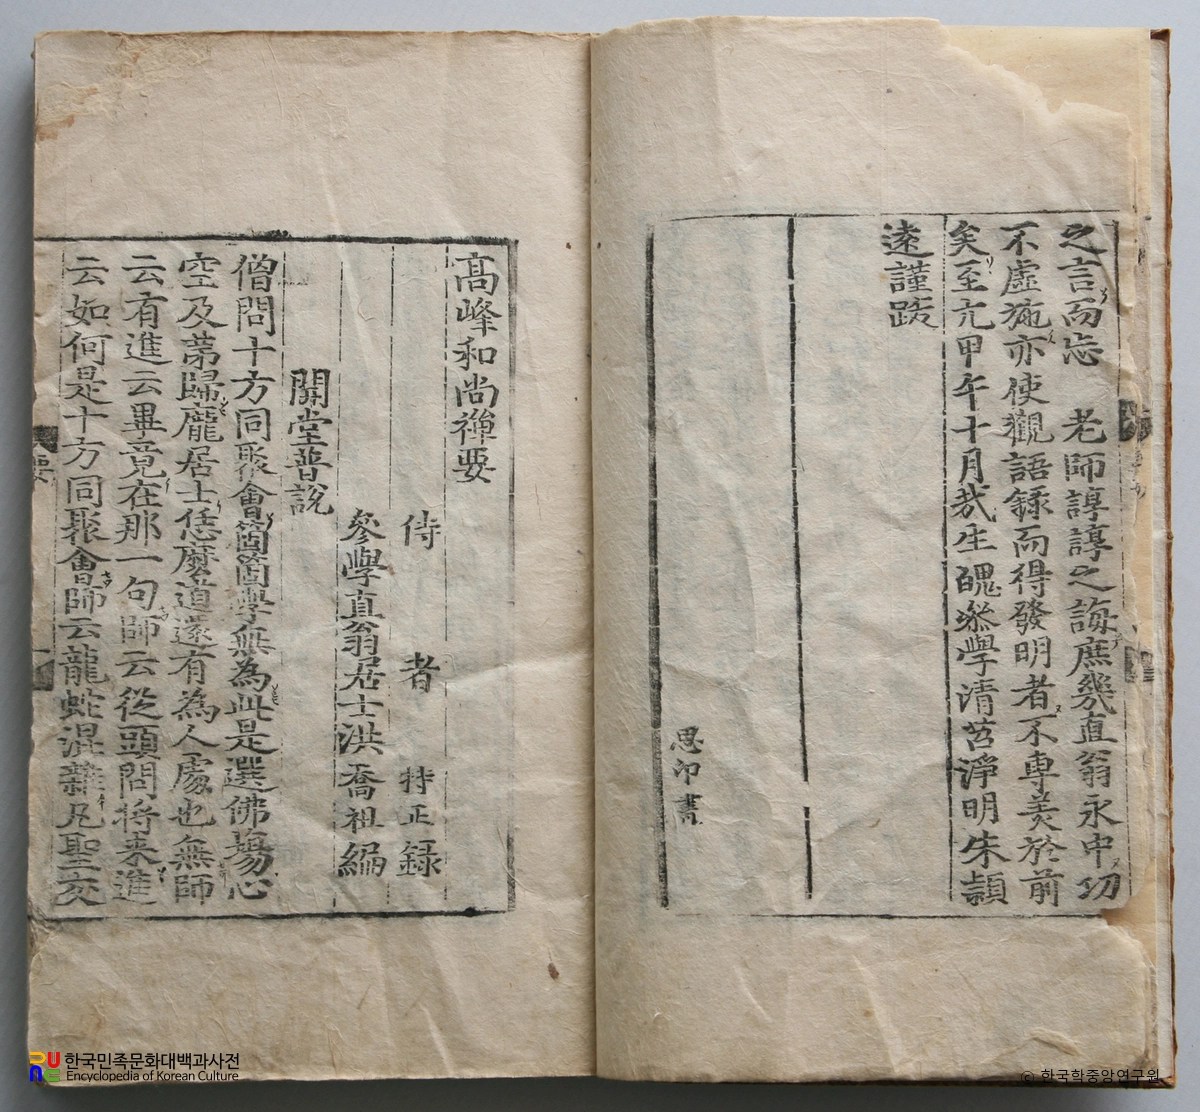 之言而忘　老師諄諄之誨庶幾直翁永中功
不虛施亦使觀語錄而得發明者不專美於前
矣至元甲午十月哉生魄叅學清苕淨明朱頴
遠謹跋
思印書
高峰和尚禪要
侍者特正錄
參學直翁居士洪喬祖編
開堂普說
僧問十方同聚會箇箇學無為此是選佛場心
空及第歸龐居士恁麼道還有為人處也無師
云有進云畢竟在那一句師云從頭問將來進
云如何是十方同聚會師云龍蛇混雜凡聖交
要
한국민족문화대백과사전
Encyclopedia of Korean Culture
© 한국학중앙연구원